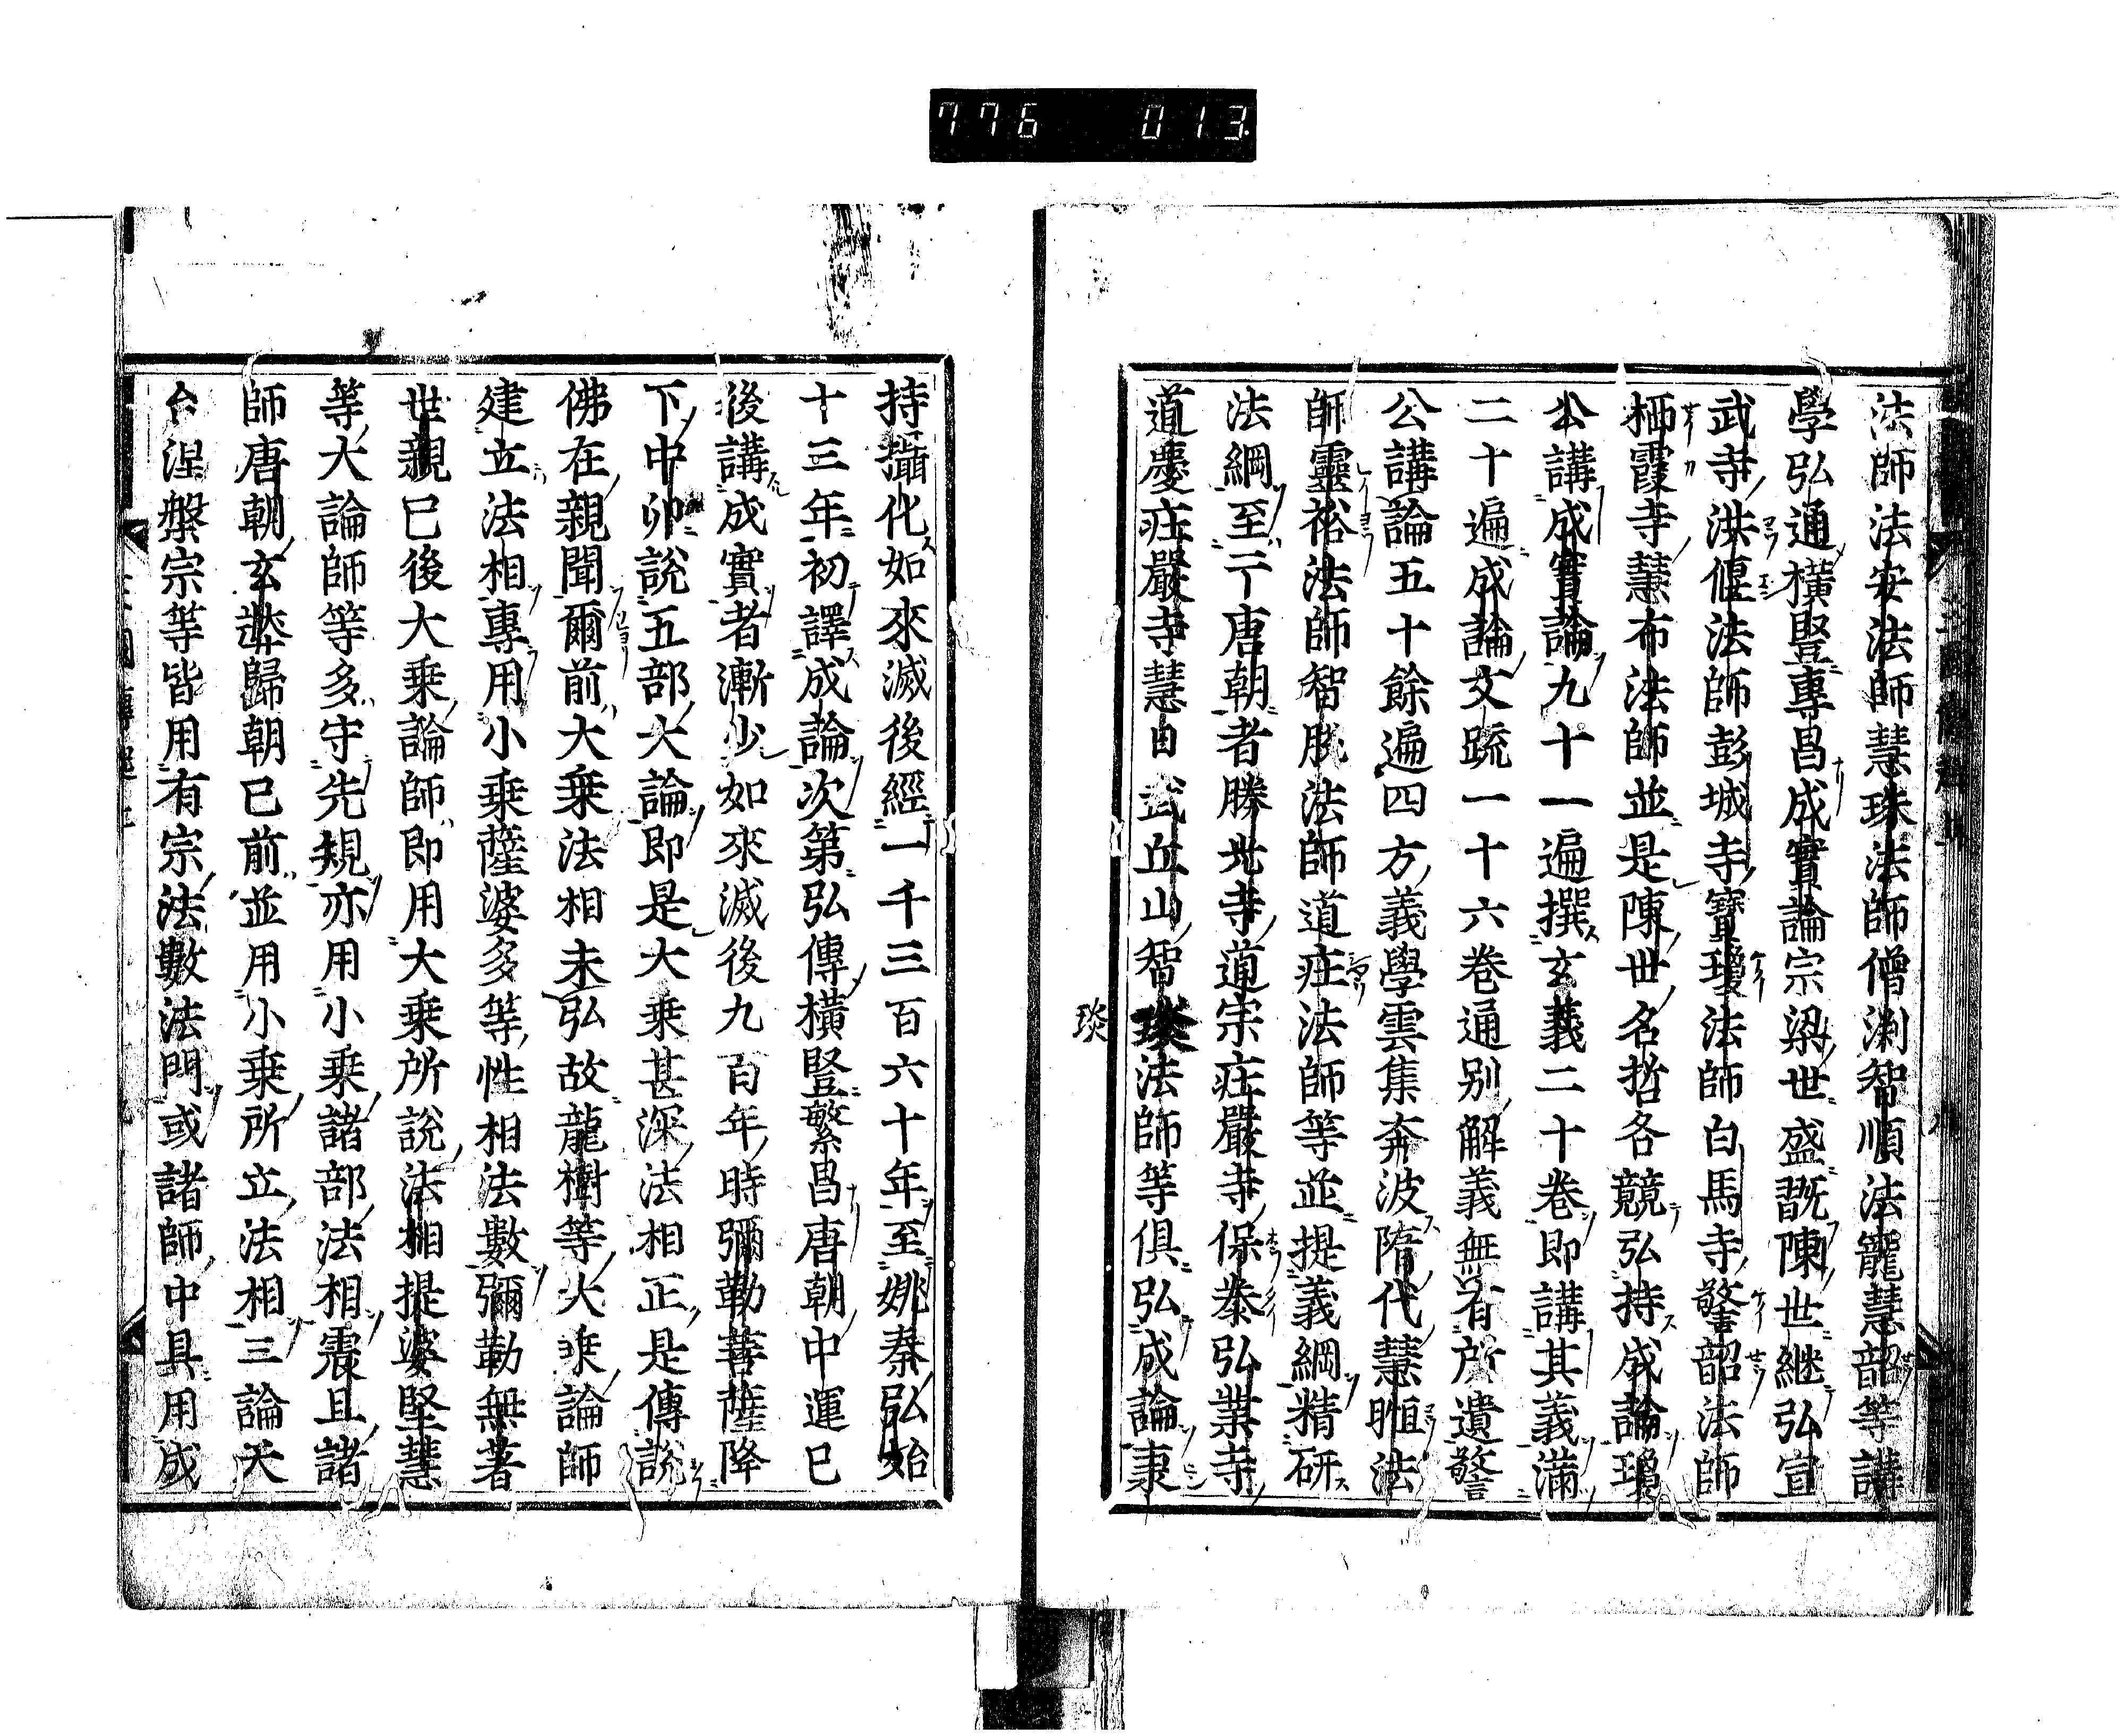 776 013
法師法安法師慧珠法師僧渕智順法寵慧韶等講
學弘通橫竪專昌成實論宗梁世盛既陳世継弘宣
武寺洪偃法師彭城寺寶瓊法師白馬寺警韶法師
栖霞寺慧布法師並是陳世名哲各競弘持成論瓊
公講成實論九十一遍撰玄義二十卷即講其義滿
二十遍成論文疏一十六卷通別解義無有所遺警
公講論五十餘遍四方義學雲集奔波隋代慧暅法
師靈裕法師智脫法師道庄法師等並提義綱精研
法綱至于唐朝者勝光寺道宗庄嚴寺保恭弘業寺
道慶庄嚴寺慧因武丘山智琰法師等俱弘成論秉
琰
持攝化如來滅後經一千三百六十年至姚秦弘始
十三年初譯成論次第弘傳橫竪繁昌唐朝中運已
後講成實者漸少如來滅後九百年時彌勒菩薩降
下中卯說五部大論即是大乘甚深法相正是傳說
佛在親聞爾前大乘法相未弘故龍樹等大乘論師
建立法相專用小乘薩婆多等性相法數彌勒無著
世親已後大乘論師即用大乘所說法相提婆堅慧
等大論師等多守先規亦用小乘諸部法相震旦諸
師唐朝玄奘歸朝已前並用小乘所立法相三論天
台涅槃宗等皆用有宗法數法門或諸師中具用成